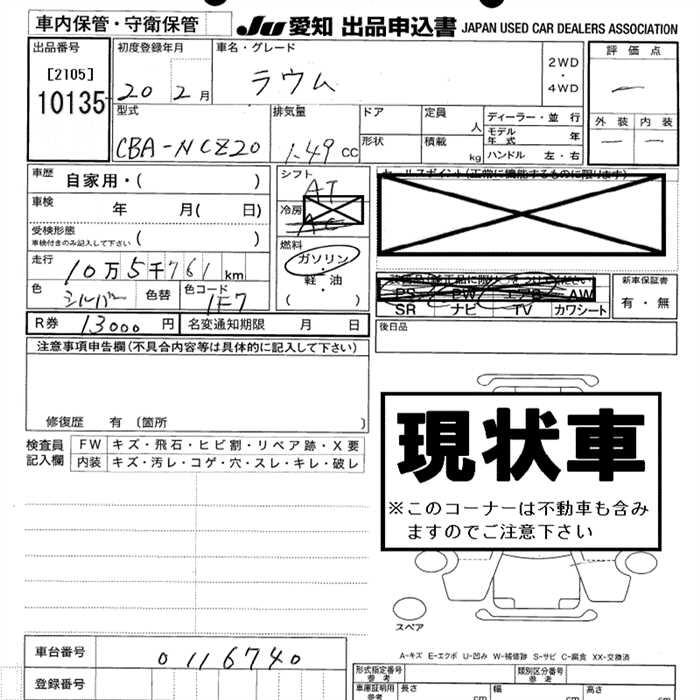 車内保管・守衛保管
JU 愛知 出品申込書 JAPAN USED CAR DEALERS ASSOCIATION
出品番号
[2105]
10135
初度登録年月
20 2月
車名・グレード
ラウム
2WD
・
4WD
評価点
—
外装 内装
— —
型式
CBA-NCZ20
排気量
1.49 CC
ドア
形状
定員 人
積載 kg
ディーラー・並行
モデル年式 年
ハンドル 左・右
車歴 自家用・( )
車検 年 月( 日)
受検形態
車検付きのみ記入して下さい ( )
走行 10万5千761km
色 シルバー 色替 色コード 1F7
R券 13000円 名変通知期限 月 日
シフト
AT
冷房
AC
燃料
ガソリン
・
軽・油
( )
セールスポイント(正常に機能するものに限ります)
PS PW エアB AW
SR ナビ TV カワシート
新車保証書
有・無
後日品
注意事項申告欄(不具合内容等は具体的に記入して下さい)
修復歴 有 〔箇所 〕
検査員記入欄
FW キズ・飛石・ヒビ割・リペア跡・X要
内装 キズ・汚レ・コゲ・穴・スレ・キレ・破レ
現状車
※このコーナーは不動車も含み
ますのでご注意下さい
スペア
A-キズ E-エクボ U-凹み W-補修跡 S-サビ C-腐食 XX-交換済
車台番号 0116740
登録番号
形式指定番号
参考
類別区分番号
参考
車庫証明用
参考
長さ cm
幅 cm
高さ cm